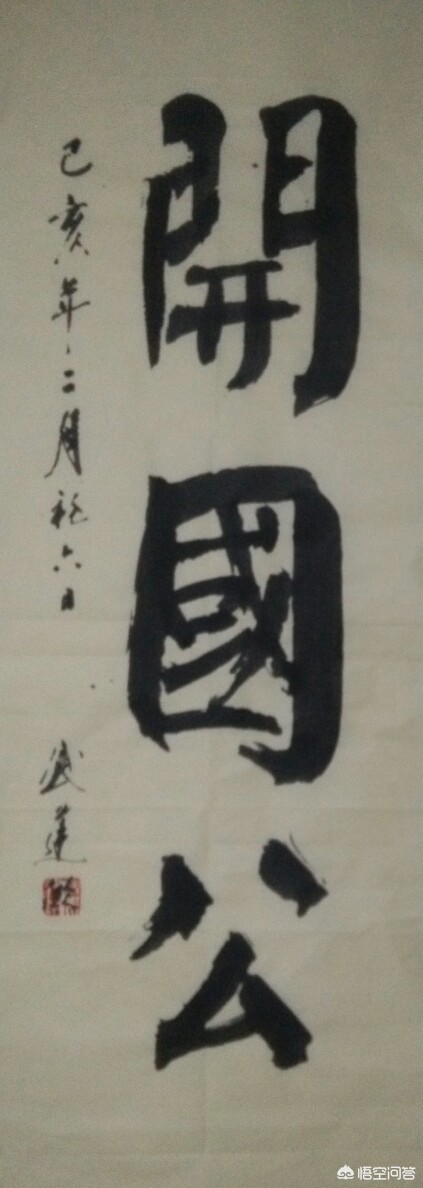 開國公
己亥年二月初六日
武蓮
悟空问答